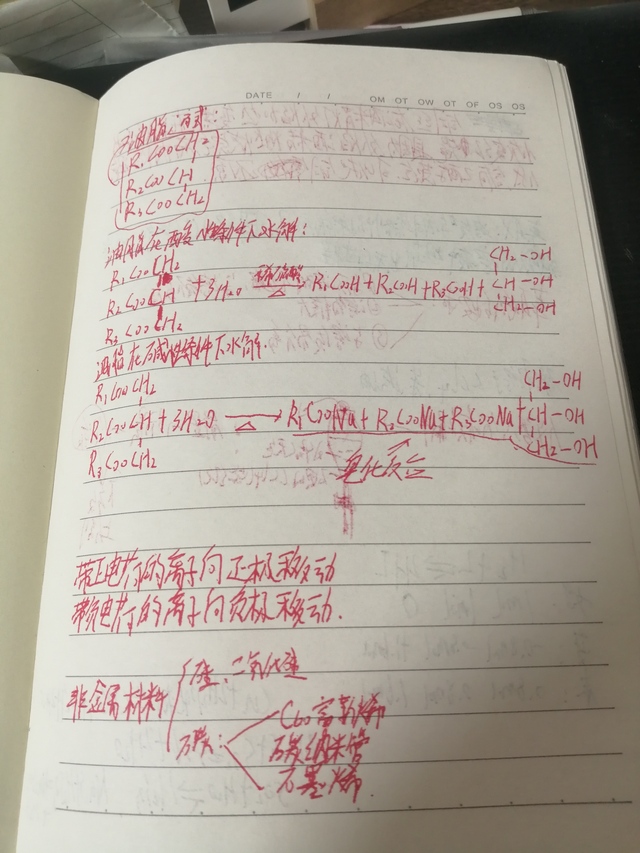 DATE / / OM OT OW OT OF OS OS
油脂通式:
R₁COOCH₂
R₂COOCH
R₃COOCH₂
油脂在酸性条件下水解:
R₁COOCH₂
R₂COOCH +3H₂O 稀硫酸 △ → R₁COOH+R₂COOH+R₃COOH+ CH₂-OH CH-OH CH₂-OH
R₃COOCH₂
油脂在碱性条件下水解.
R₁COOCH₂
R₂COOCH+3H₂O △ → R₁COONa+R₂COONa+R₃COONa+ CH₂-OH CH-OH CH₂-OH
R₃COOCH₂
皂化反应
带正电荷的离子向正极移动
带负电荷的离子向负极移动.
非金属材料
硅:二氧化硅
碳:
C60富勒烯
碳纳米管
石墨烯.